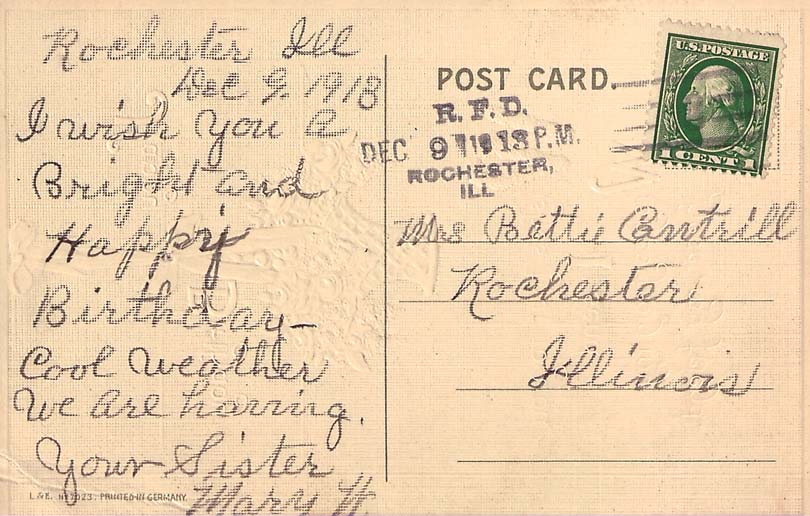 Rochester Ill
Dec 9. 1913
I wish You A
Bright and
Happy
Birthday—
Cool Weather
We Are having.
Your Sister
Mary H.
L&E. Nº 7023. PRINTED IN GERMANY.
POST CARD.
R. F. D.
DEC 9 1913 P.M.
ROCHESTER,
ILL
U.S. POSTAGE
1 CENT 1
Mrs Bettie Cantrill
Rochester
Illinois